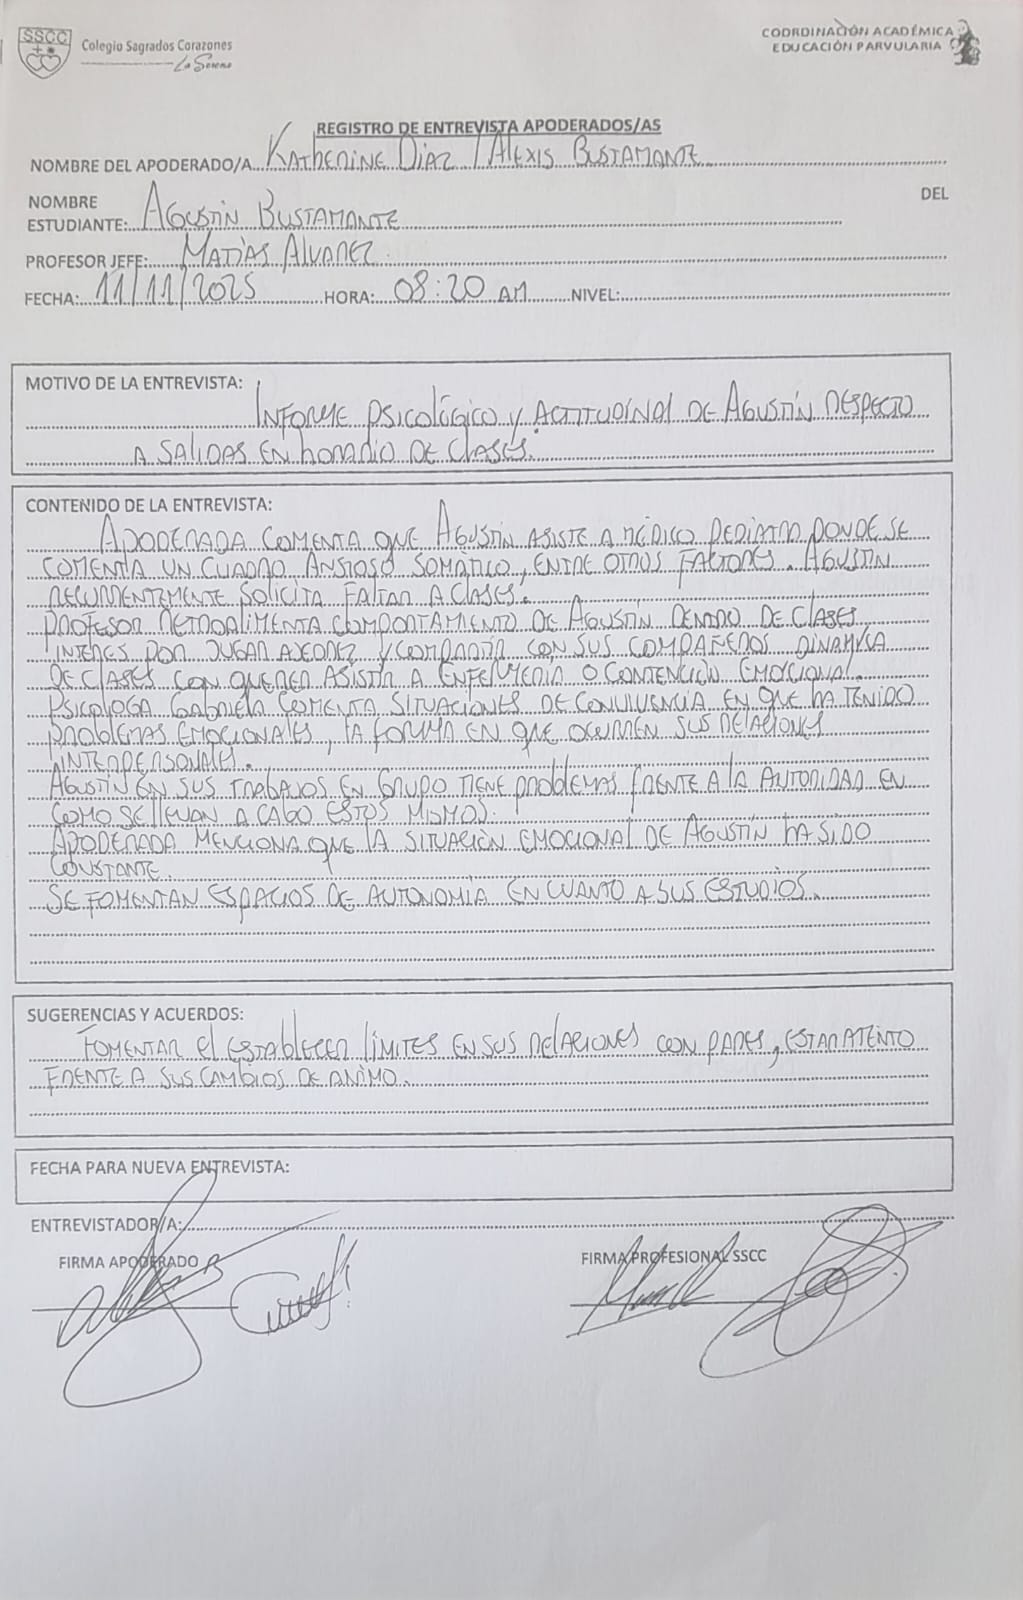 SSCC
Colegio Sagrados Corazones
La Serena
COORDINACIÓN ACADÉMICA
EDUCACIÓN PARVULARIA
REGISTRO DE ENTREVISTA APODERADOS/AS
NOMBRE DEL APODERADO/A KATHERINE DIAZ / ALEXIS BUSTAMANTE
NOMBRE DEL
ESTUDIANTE: AGUSTÍN BUSTAMANTE
PROFESOR JEFE: MATÍAS ALVAREZ
FECHA: 11/11/2025 HORA: 08:20 AM NIVEL:
MOTIVO DE LA ENTREVISTA:
INFORME PSICOLÓGICO Y ACTITUDINAL DE AGUSTÍN RESPECTO
A SALIDAS EN HORARIO DE CLASES.
CONTENIDO DE LA ENTREVISTA:
APODERADA COMENTA QUE AGUSTÍN ASISTE A MÉDICO PEDIATRA DONDE SE
COMENTA UN CUADRO ANSIOSO SOMÁTICO, ENTRE OTROS FACTORES. AGUSTÍN
RECURRENTEMENTE SOLICITA FALTAR A CLASES.
PROFESOR RETROALIMENTA COMPORTAMIENTO DE AGUSTÍN DENTRO DE CLASES
INTERES POR JUGAR AJEDREZ Y COMPARTIR CON SUS COMPAÑEROS DINAMICA
DE CLASES CON QUERER ASISTIR A ENFERMERIA O CONTENCIÓN EMOCIONAL.
PSICOLOGA GABRIELA COMENTA SITUACIONES DE CONVIVENCIA EN QUE HA TENIDO
PROBLEMAS EMOCIONALES, LA FORMA EN QUE OCURREN SUS RELACIONES
INTERPERSONALES.
AGUSTÍN EN SUS TRABAJOS EN GRUPO TIENE PROBLEMAS FRENTE A LA AUTORIDAD EN
COMO SE LLEVAN A CAGO ESTOS MISMOS.
APODERADA MENCIONA QUE LA SITUACIÓN EMOCIONAL DE AGUSTÍN HA SIDO
CONSTANTE.
SE FOMENTAN ESPACIOS DE AUTONOMÍA EN CUANTO A SUS ESTUDIOS.
SUGERENCIAS Y ACUERDOS:
FOMENTAR EL ESTABLECER LÍMITES EN SUS RELACIONES CON PARES, ESTAR ATENTO
FRENTE A SUS CAMBIOS DE ANIMO.
FECHA PARA NUEVA ENTREVISTA:
ENTREVISTADOR/A:
FIRMA APODERADO FIRMA PROFESIONAL SSCC